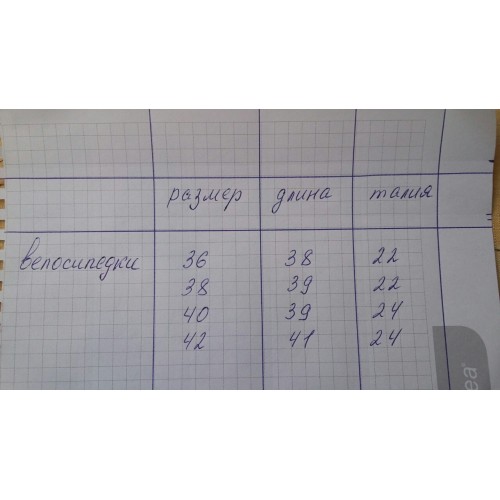 размер длина талия
велосипедки 36 38 22
38 39 22
40 39 24
42 41 24
ea